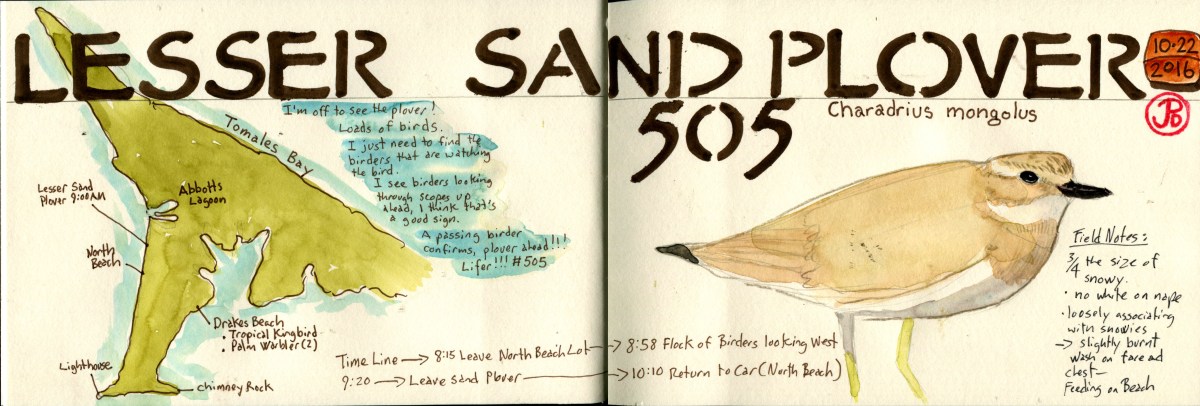 LESSER SAND PLOVER
505
10-22
2016
JPD
Charadrius mongolus
Tomales Bay
I'm off to see the plover!
Loads of birds.
I just need to find the
birders that are watching
the bird.
I see birders looking
through scopes up
ahead, I think that's
a good sign.
A passing birder
confirms, plover ahead!!!
Lifer!!! #505
Lesser Sand
Plover 9:00AM
Abbotts
Lagoon
North
Beach
Drakes Beach
• Tropical Kingbird
• Palm Warbler (2)
Lighthouse
Chimney Rock
Time Line → 8:15 Leave North Beach Lot → 8:58 Flock of Birders looking West
9:20 → Leave Sand Plover → 10:10 Return to Car (North Beach)
Field Notes:
3/4 the size of
snowy.
• no white on nape
• loosely associating
with snowies
→ slightly burnt
wash on fore ad
chest—
Feeding on Beach